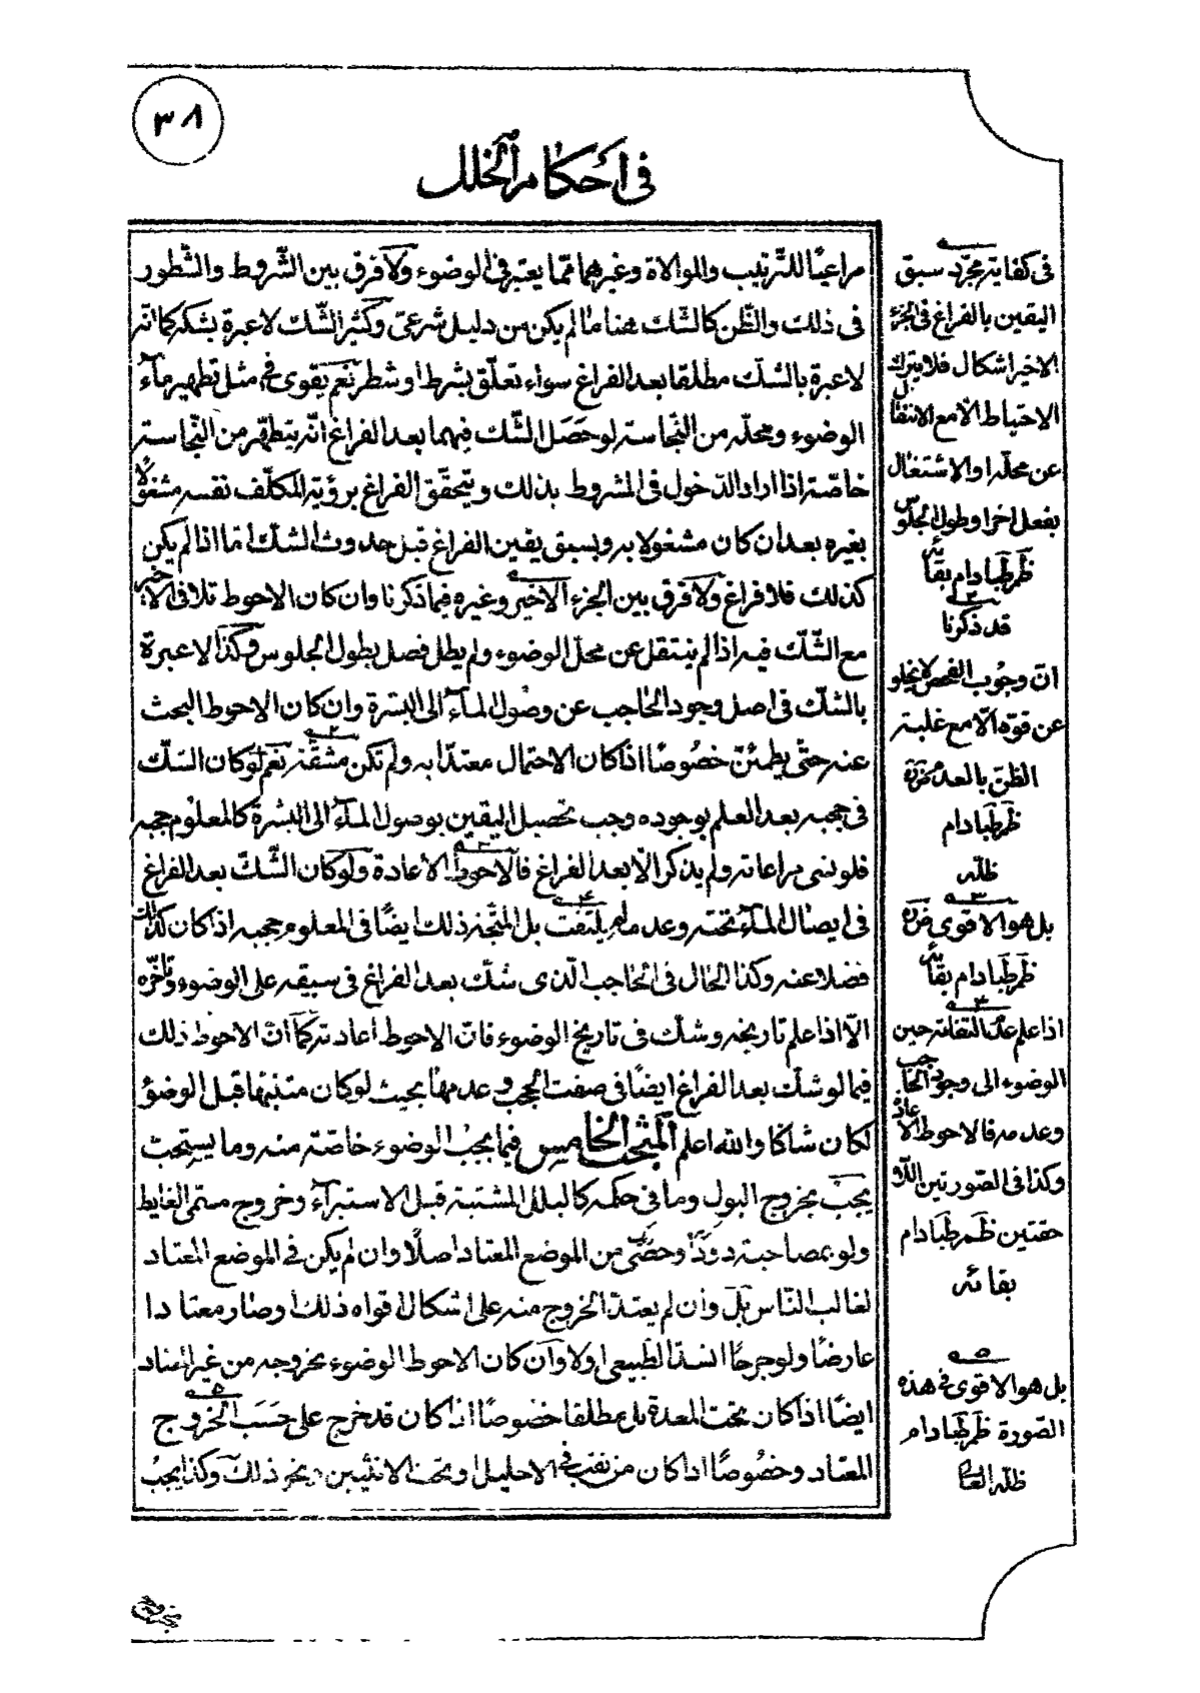 ٣٨
فى احكام الخلل
مراعيًا للتّرتيب والموالاة وغيرهما ممّا يعتبر فى الوضوء ولا فرق بين الشّروط والشّطور
فى ذلك والظّن كالشّك هنا ما لم يكن من دليل شرعىّ وكثير الشّك لا عبرة بشكه كما انّه
لا عبرة بالشّك مطلقا بعد الفراغ سواء تعلّق بشرط او شطر نعم يقوى فى مثل تطهير ماء
الوضوء ومحلّه من النّجاسة لو حَصَل الشّك فيهما بعد الفراغ انّه يتطهّر من النّجاسة
خاصّة اذا اراد الدّخول فى المشروط بذلك ويتحقّق الفراغ برؤية المكلّف نفسه مشغولًا
بغيره بعد ان كان مشغولا به وبسبق يقين الفراغ قبل حدوث الشك امّا اذا لم يكن
كذلك فلا فراغ ولا فرق بين الجزء الاخير وغيره فيما ذكرنا وان كان الاحوط تلافى الاخير
مع الشّك فيه اذا لم ينتقل عن محلّ الوضوء ولم يطل فصل بطول الجلوس وكذا لا عبرة
بالشّك فى اصل وجود الحاجب عن وصُول الماء الى البشرة وان كان الاحوط البحث
عنه حتّى يطمئنّ خصُوصًا اذا كان الاحتمال معتدّا به ولم تكن مشقّة نعم لو كان الشّك
فى حجبه بعد العلم بوجوده وجب تحصيل اليقين بوصول الماء الى البشرة كالمعلوم حجبه
فلو نسى مراعاته ولم يذكر الّا بعد الفراغ فالاحوط الاعادة ولو كان الشّك بعد الفراغ
فى ايصال الماء تحته وعدمه لم يلتفت بل المتّجه ذلك ايضًا فى المعلوم حجبه اذا كان كذلك
فضلا عنه وكذا الحال فى الحاجب الّذى شكّ بعد الفراغ فى سبقه على الوضوء وتأخّره
الّا اذا علم تاريخه وشكّ فى تاريخ الوضوء فانّ الاحوط اعادته كما انّ الاحوط ذلك
فيما لو شكّ بعد الفراغ ايضًا فى صفت الحجب وعدمها بحيث لو كان متنبّها قبل الوضوء
لكان شاكّا والله اعلم المبحث الخامس فيما يجب الوضوء خاصّة منه وما يستحبّ
يجب بخروج البول وما فى حكمه كالبلل المشتبة قبل الاستبراء وخروج مسمّى الغايط
ولو بمصاحبة دودًا وحصًى من الموضع المعتاد اصلًا وان لم يكن فى الموضع المعتاد
لغالب النّاس بل وان لم يعتدّ الخروج منه على اشكال اقواه ذلك او صار معتادا
عارضًا ولو جرحًا انسدّ الطّبيعى او لا وان كان الاحوط الوضوء بخروجه من غير المعتاد
ايضًا اذا كان تحت المعدة بل مطلقا خصُوصًا اذا كان قد خرج على حَسَب الخروج
المعتاد وخصُوصًا اذا كان من ثقب فى الاحليل او تحت الانثيين ونحو ذلك وكذا يجب
فى كفاية مجرّد سبق
اليقين بالفراغ فى الجزء
الاخير اشكال فلا يترك
الاحتياط الّا مع الانتقال
عن محلّه او الاشتغال
بفعل اخر او طول الجلوس
ظم طبا دام بقاؤه
٢
قد ذكرنا
انّ وجُوب الفحص لا يخلو
عن قوّه الّا مع غلبة
الظنّ بالعدم
ظم طبا دام
ظلّه
٣
بل هو الاقوى
ظم طبا دام بقاؤه
٤
اذا علم عدم التفاته حين
الوضوء الى وجود الحاجب
وعدمه فالاحوط الاعادة
وكذا فى الصّورتين اللا
حقتين ظم طبا دام
بقائه
٥
بل هو الاقوى فى هذه
الصّورة ظم طبا دام
ظلّه العالى